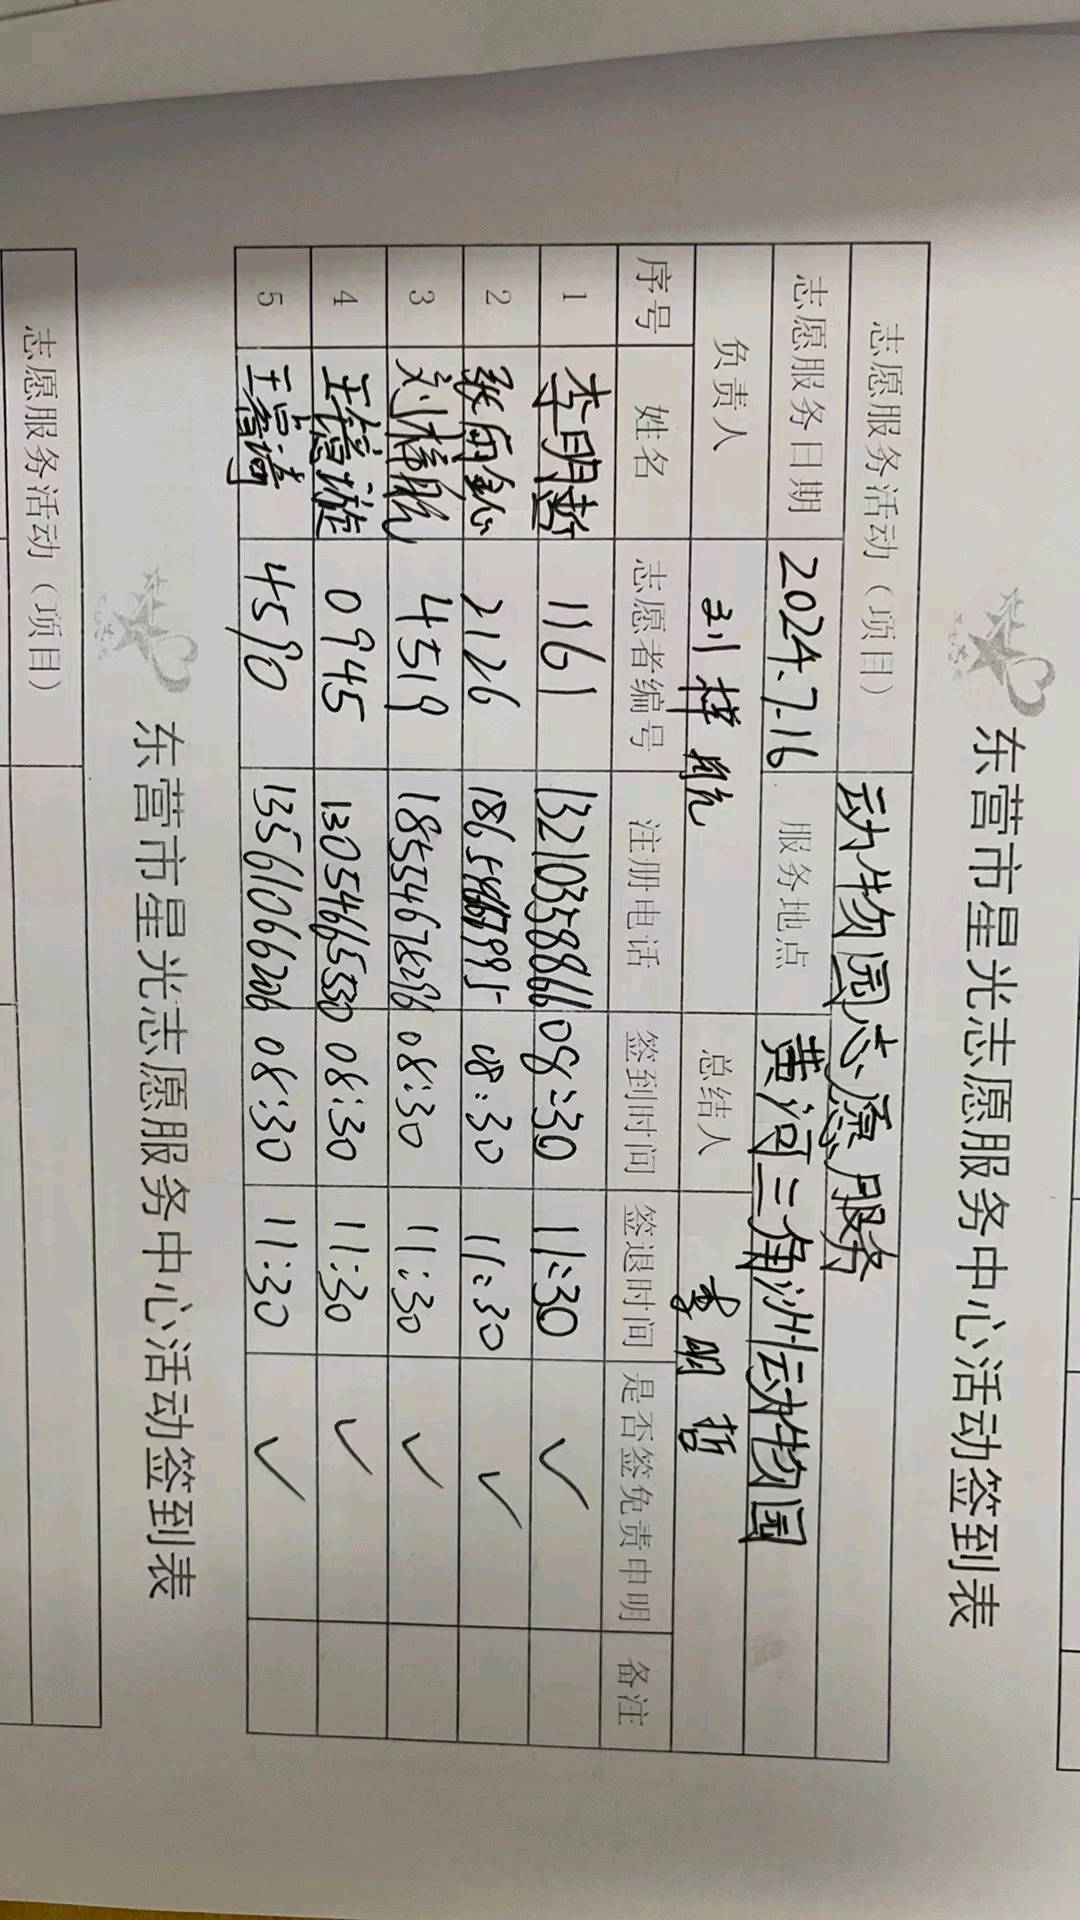 东营市星光志愿服务中心活动签到表
志愿服务活动（项目） 动物园志愿服务
志愿服务日期 2024.7.16 服务地点 黄河三角洲动物园
负责人 刘梓航 总结人 李明哲
序号 姓名 志愿者编号 注册电话 签到时间 签退时间 是否签免责申明 备注
1 李明哲 1161 13210358866 08:30 11:30 ✓
2 2126 08:30 11:30 ✓
3 刘梓航 4519 08:30 11:30 ✓
4 0945 13054665550 08:30 11:30 ✓
5 4590 08:30 11:30 ✓
东营市星光志愿服务中心活动签到表
志愿服务活动（项目）